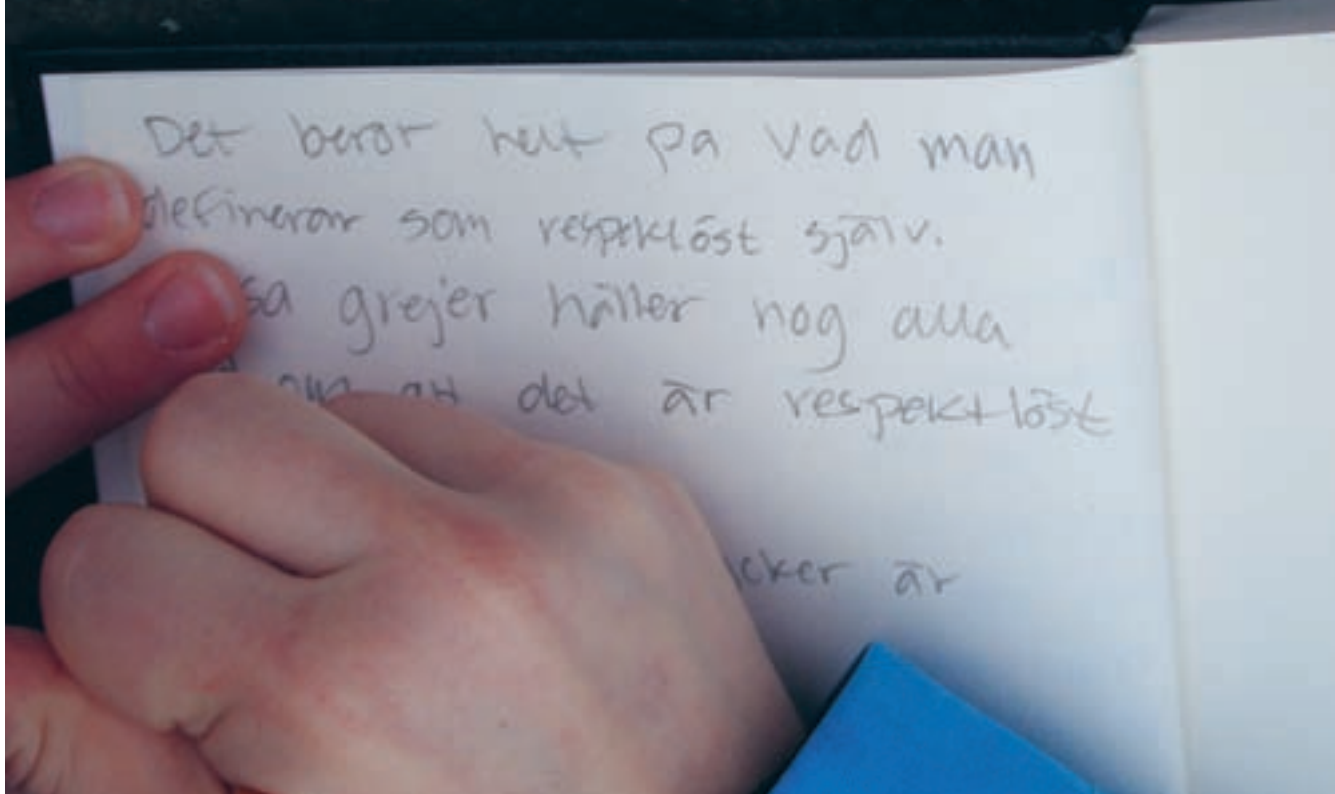 Det beror helt på vad man
definerar som respeklöst själv.
sa grejer håller nog alla
om att det är respektlöst
cker är